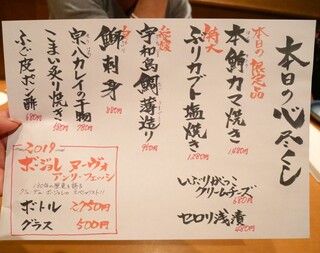 本日の心尽くし
本日の限定品
本鮪カマ焼き 1480円
特大
ぶりカブト塩焼き 1280円
愛媛
宇和島鯛薄造り 980円
鰤刺身 880円
宗八カレイの干物 780円
こまい炙り焼き 580円
ふぐ皮ポン酢 680円
いぶりがっこクリームチーズ 680円
セロリ浅漬 480円
～2019～
ボージョレ ヌーヴォ
ボトル 2750円
グラス 500円